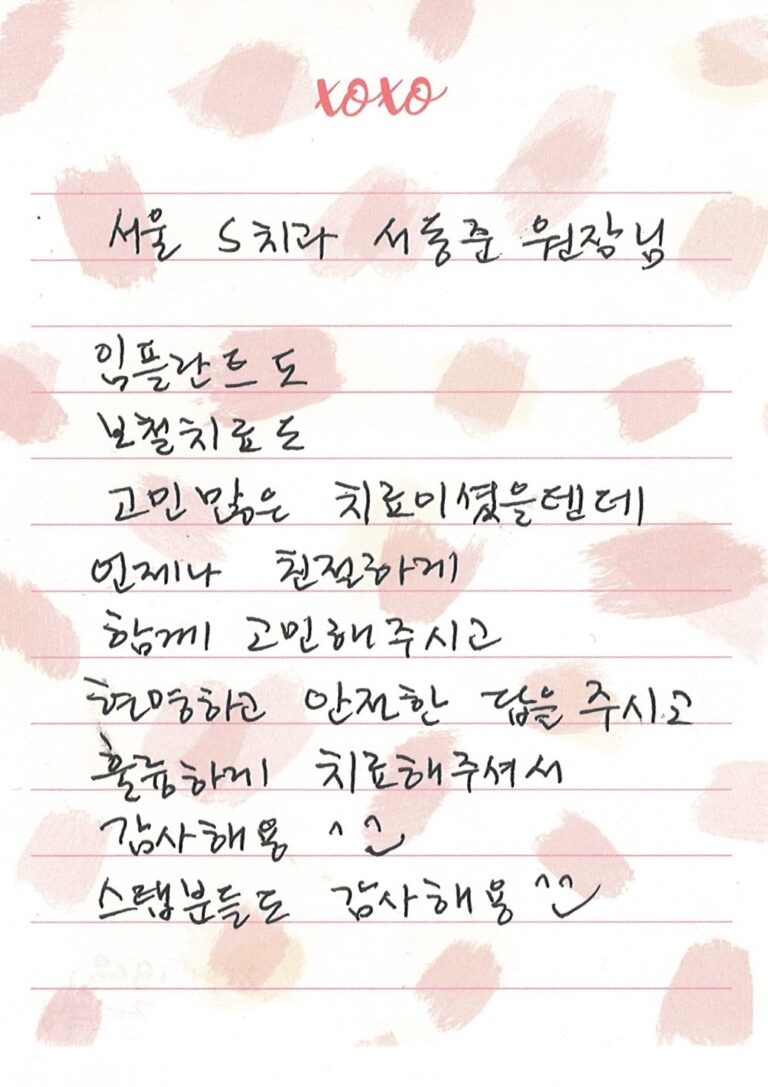 xoxo
서울 S치과 서동준 원장님
임플란트도
보철치료도
고민많은 치료이셨을텐데
언제나 친절하게
함께 고민해주시고
현명하고 안전한 답을 주시고
훌륭하게 치료해주셔서
감사해용 ^^
스탭분들도 감사해용 ^^